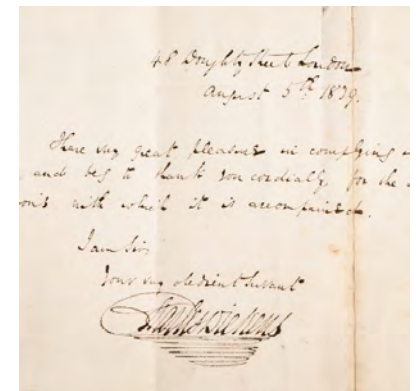 48 Doughty Street London
August 5th 1839.
I have very great pleasure in complying
and beg to thank you cordially for the
ons with which it is accompanied.
I am Sir
Your very obedient Servant
Charles Dickens